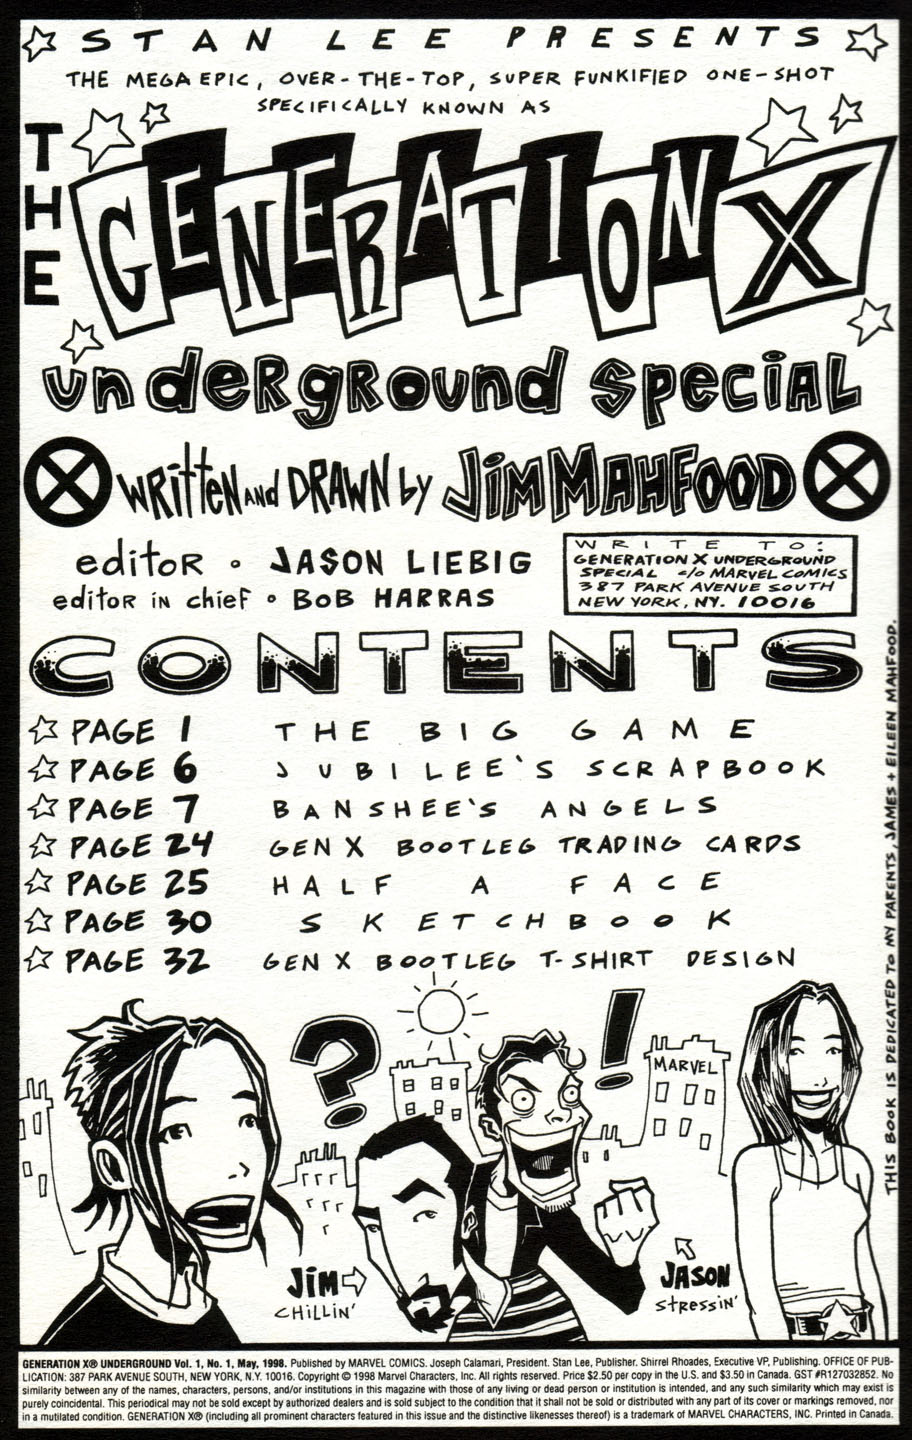 STAN LEE PRESENTS
THE MEGA EPIC, OVER-THE-TOP, SUPER FUNKIFIED ONE-SHOT
SPECIFICALLY KNOWN AS
THE
GENERATION X
underground special
written and DRAWN by JIM MAHFOOD
editor • JASON LIEBIG
editor in chief • BOB HARRAS
WRITE TO:
GENERATION X UNDERGROUND
SPECIAL c/o MARVEL COMICS
387 PARK AVENUE SOUTH
NEW YORK, NY. 10016
CONTENTS
PAGE 1 THE BIG GAME
PAGE 6 JUBILEE'S SCRAPBOOK
PAGE 7 BANSHEE'S ANGELS
PAGE 24 GEN X BOOTLEG TRADING CARDS
PAGE 25 HALF A FACE
PAGE 30 SKETCHBOOK
PAGE 32 GEN X BOOTLEG T-SHIRT DESIGN
THIS BOOK IS DEDICATED TO MY PARENTS, JAMES + EILEEN MAHFOOD.
? !
MARVEL
JIM
CHILLIN'
JASON
STRESSIN'
GENERATION X® UNDERGROUND Vol. 1, No. 1, May, 1998. Published by MARVEL COMICS. Joseph Calamari, President. Stan Lee, Publisher. Shirrel Rhoades, Executive VP, Publishing. OFFICE OF PUB-
LICATION: 387 PARK AVENUE SOUTH, NEW YORK, N.Y. 10016. Copyright © 1998 Marvel Characters, Inc. All rights reserved. Price $2.50 per copy in the U.S. and $3.50 in Canada. GST #R127032852. No
similarity between any of the names, characters, persons, and/or institutions in this magazine with those of any living or dead person or institution is intended, and any such similarity which may exist is
purely coincidental. This periodical may not be sold except by authorized dealers and is sold subject to the condition that it shall not be sold or distributed with any part of its cover or markings removed, nor
in a mutilated condition. GENERATION X® (including all prominent characters featured in this issue and the distinctive likenesses thereof) is a trademark of MARVEL CHARACTERS, INC. Printed in Canada.